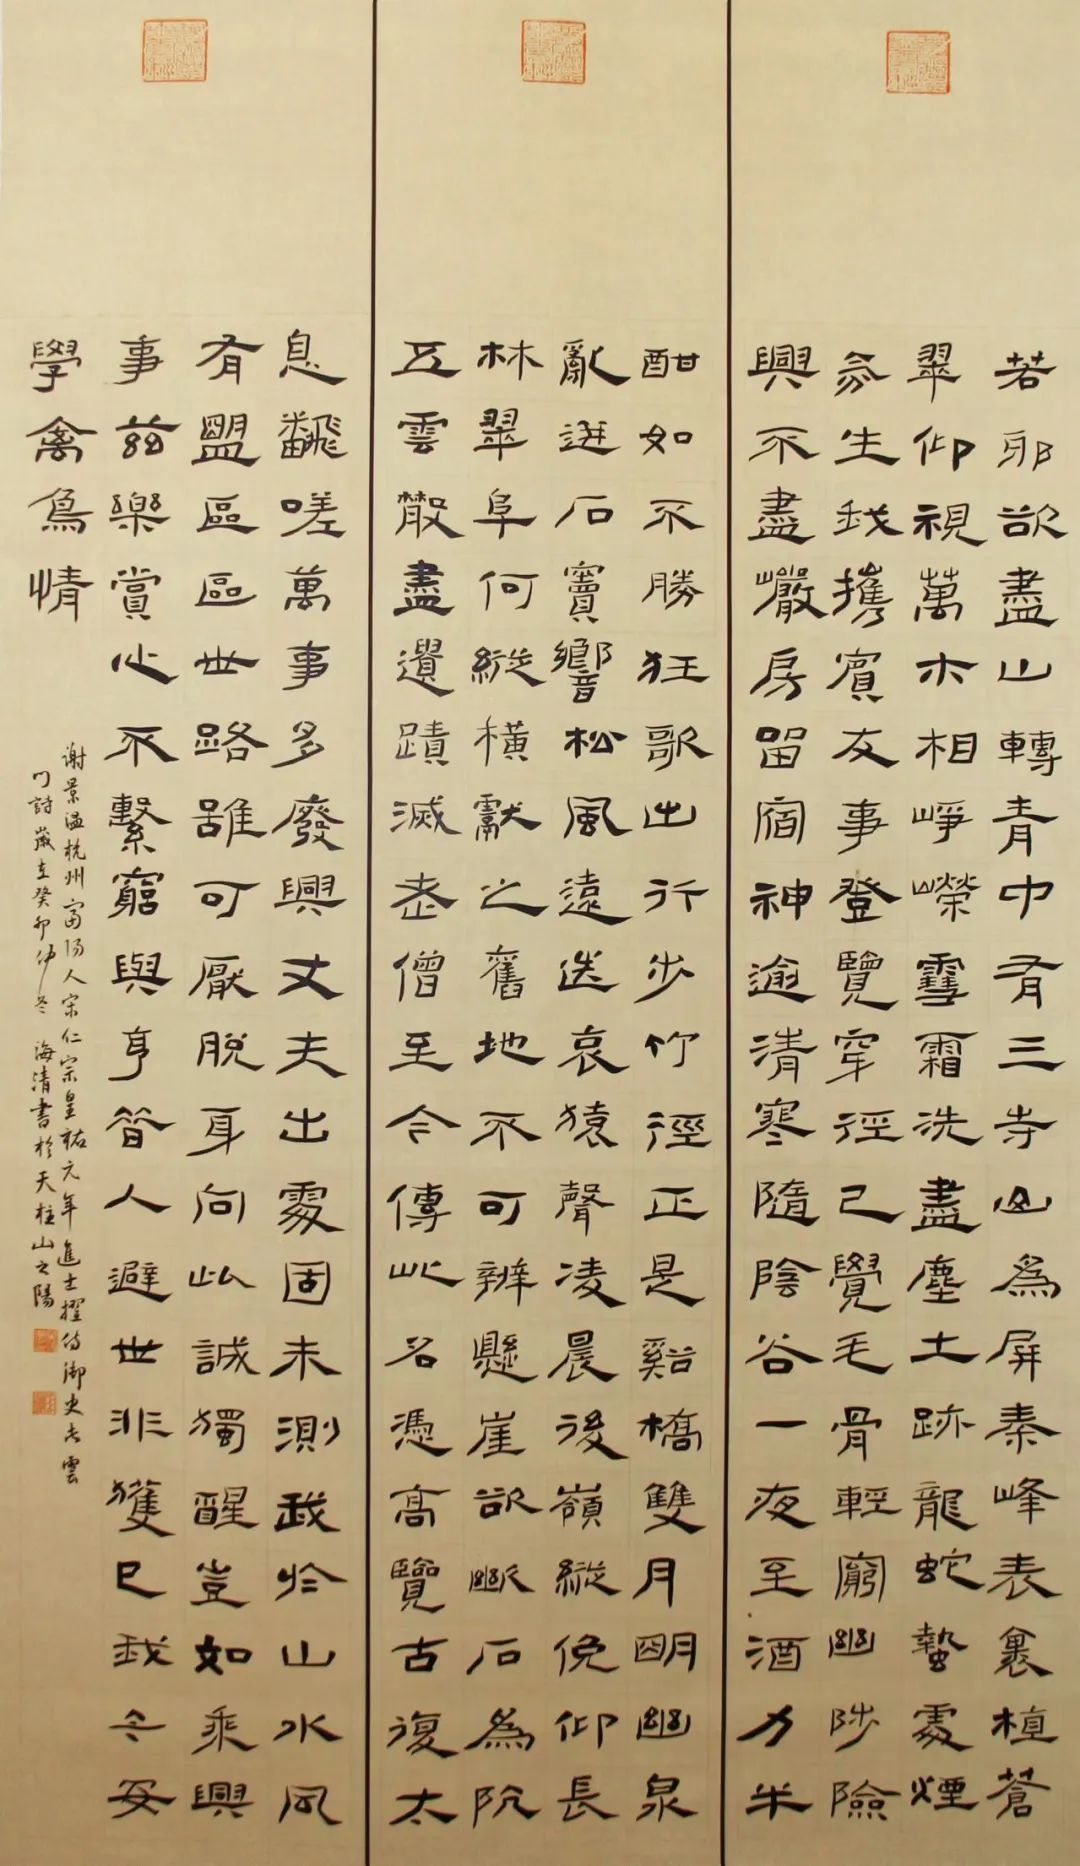 若邪欲盡山轉青中有三寺山為屏秦峰表裏植蒼
翠仰視萬木相崢嶸雪霜洗盡塵土跡龍蛇蟄處煙
氛生我攜賓友事登覽穿徑已覺毛骨輕窮幽陟險
興不盡巖房留宿神逾清寒隨陰谷一夜至酒力未
酣如不勝狂歌出行步竹徑正是谿橋雙月明幽泉
亂迸石竇響松風遠送哀猿聲凌晨後嶺縱俛仰長
林翠阜何縱橫獻之舊地不可辨懸崖欲斷石為阬
五雲散盡遺蹟滅老僧至今傳此名憑高覽古復太
息飜嗟萬事多廢興丈夫出處固未測我於山水風
有盟區區世路雖可厭脫身向此誠獨醒豈如乘興
事茲樂賞心不繫窮與亨昔人避世非獲已我今安
學禽鳥情
谢景温杭州富陽人宋仁宗皇祐元年進士擢侍御史雲
门詩歲在癸卯仲冬海清書於天柱山之陽